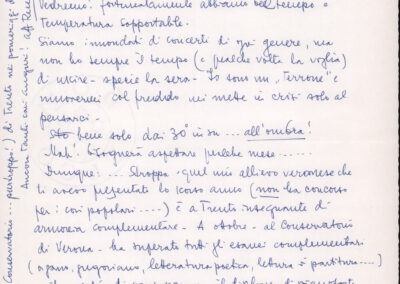 Vedremo! fortunatamente abbiamo bel tempo e
temperatura sopportabile.
Siamo inondati di concerti di ogni genere, ma
non ho sempre il tempo (e qualche volta la voglia)
di uscire - specie la sera - Io sono un "terrone" e
muovermi col freddo mi mette in crisi solo al
pensarci.
Sto bene solo dai 30° in su ... all'ombra!
Mah! bisognerà aspettare qualche mese ......
Dunque: ... Stroppa - quel mio allievo veronese che
ti avevo presentato lo scorso anno (non ha concorso
per i cori popolari .....) è a Trento insegnante di
armonia complementare - A ottobre - al Conservatorio
di Verona - ha superato tutti gli esami complementari
(organo, gregoriano, letteratura poetica, lettura di partitura ....)
il diploma di pianoforte
Conservatorio ... purtroppo!) di Trento nei pomeriggi di
Ancora tanti cari auguri! aff